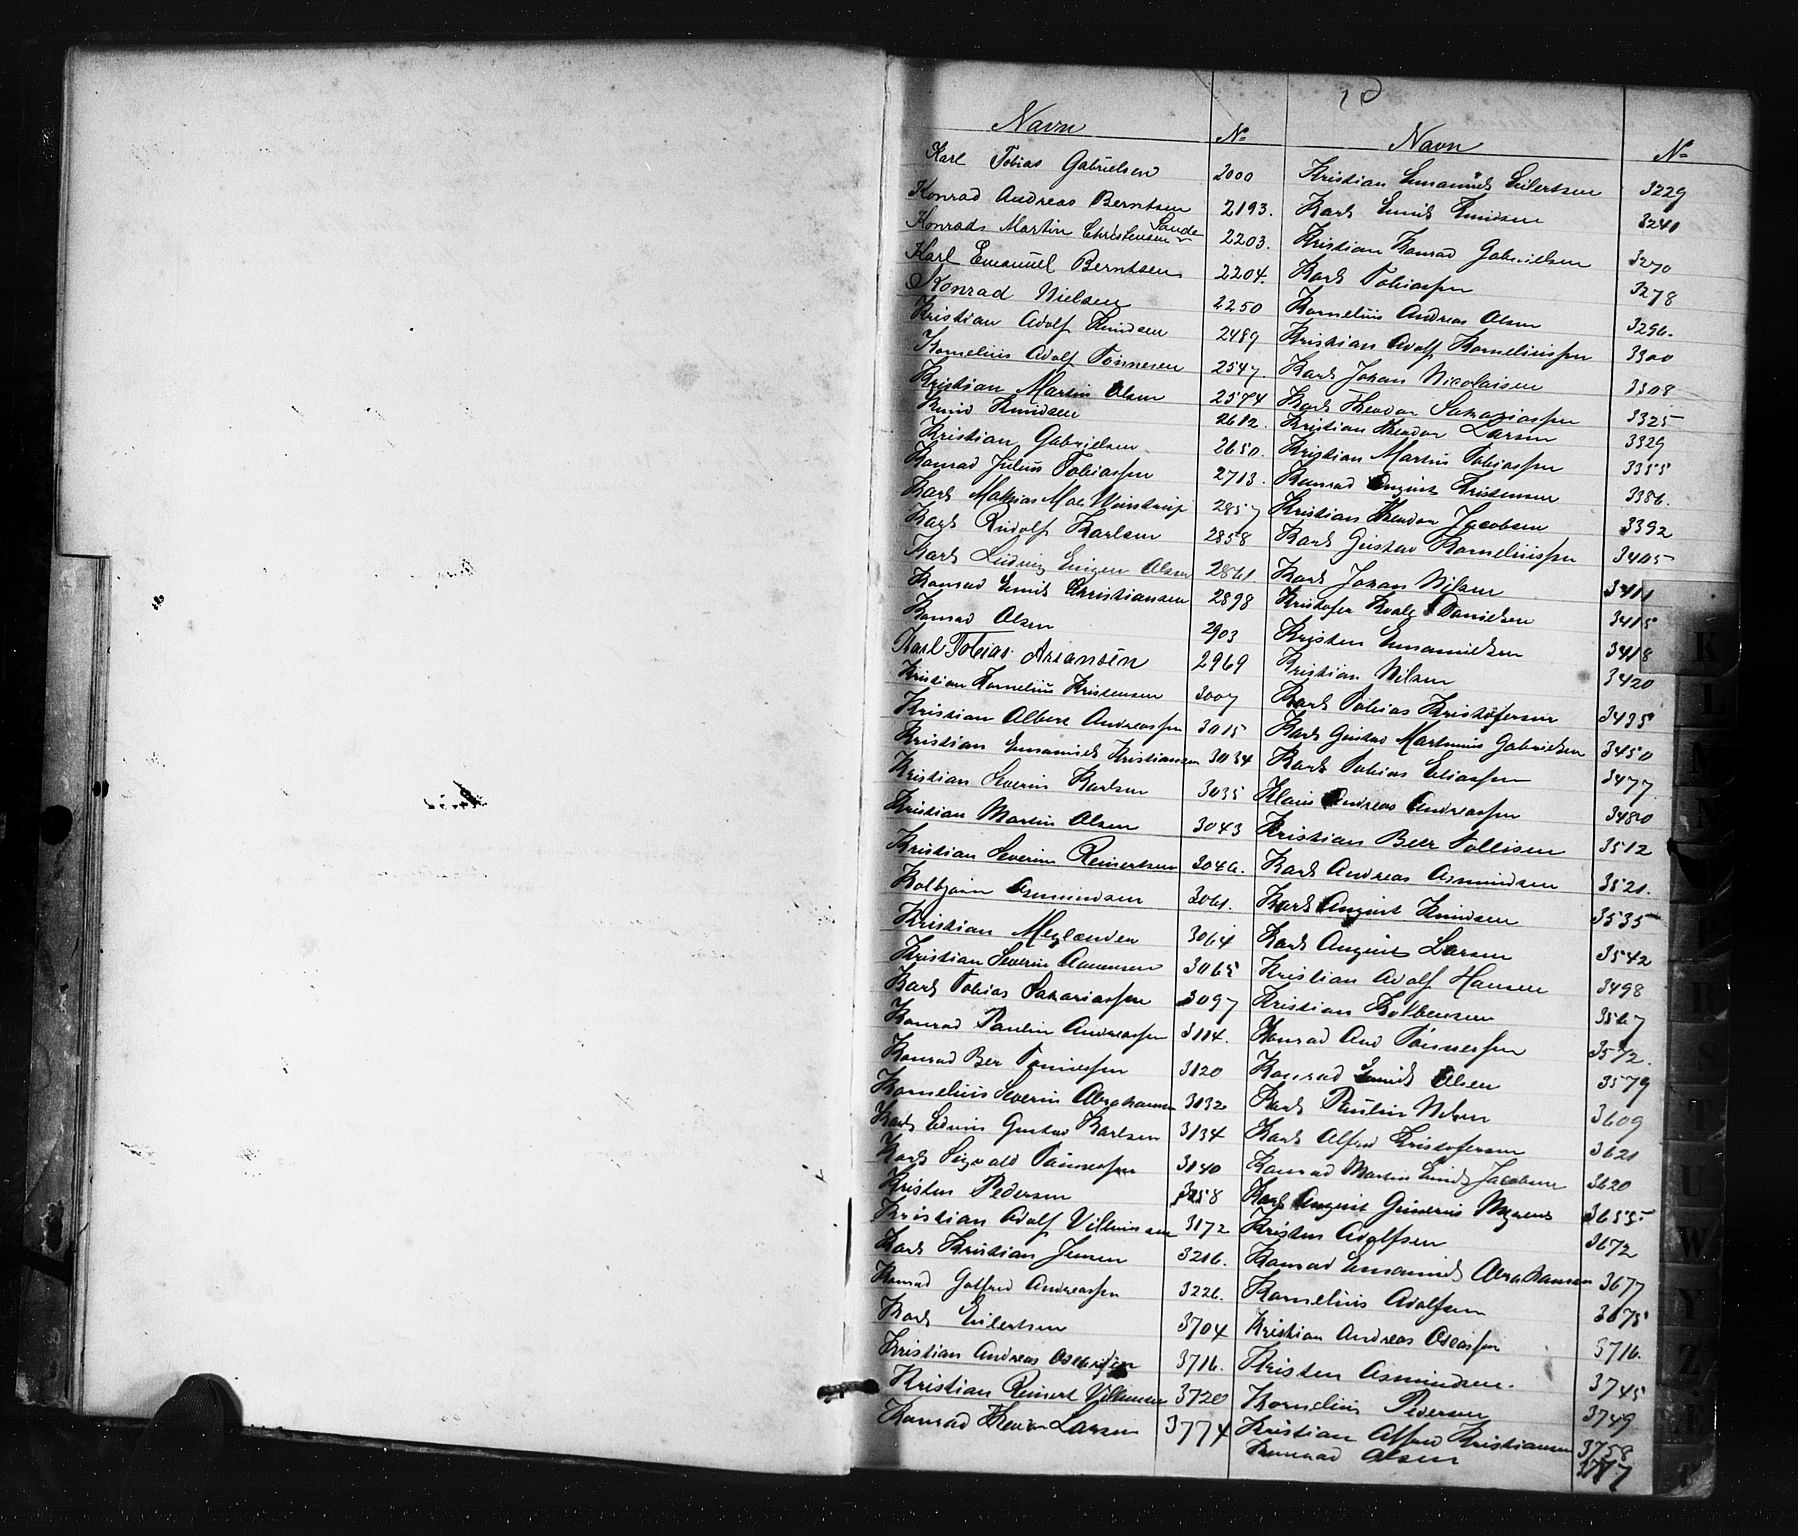 10
Navn No
Karl Tobias Gabrielsen 2000
Konrad Andreas Berntsen 2193.
Konrads Martin Christensen Sande 2203.
Karl Emanuel Berntsen 2204.
Konrad Nielsen 2250
Kristian Adolf Knudsen 2489
Kornelius Adolf Tönnesen 2547.
Kristian Martin Olsen 2574
Knud Knudsen 2612.
Kristian Gabrielsen 2650.
Konrad Julius Tobiassen 2713.
Karl Mathias Moe 2857
Karl Rudolf Karlsen 2858
Karl Ludvig Eugen Olsen 2861
Konrad Emil Christiansen 2898
Konrad Olsen 2903
Karl Tobias Arsansen 2969
Kristian Kornelius Kristensen 3007
Kristian Albert Andreassen 3015
Kristian Emanuel Kristiansen 3034
Kristian Severin Karlsen 3035
Kristian Martin Olsen 3043
Kristian Severin Reinertsen 3046.
Kolbjörn Asmundsen 3061.
Kristian Meylænder 3064
Kristian Severin Aanensen 3065
Karl Tobias Sakariassen 3097
Konrad Paulin Andreassen 3114.
Konrad Ber Tönnessen 3120
Kornelius Severin Abrahamsen 3132
Karl Edvin Gustav Karlsen 3134
Karl Sigvald Tönnessen 3140
Kristen Pedersen 3158
Kristian Adolf Vilhelmsen 3172
Karl Kristian Jensen 3216.
Konrad Gotfred Andreassen 3226.
Karl Eilertsen 3704
Kristian Andreas 3716.
Kristian Reinert Vilhemsen 3720
Konrad Theodor Larsen 3774
Navn No
Kristian Emanuel Eilertsen 3229
Karl Emil Knudsen 3240
Kristian Konrad Gabrielsen 3270
Karl Tobiassen 3278
Kornelius Andreas Olsen 3296.
Kristian Adolf Korneliussen 3300
Karl Johan Nicolaisen 3308
Karl Theodor Sakariassen 3325
Kristian Theodor Larsen 3329
Kristian Martin Tobiassen 3355
Konrad August Kristensen 3386.
Kristian Theodor Jacobsen 3392
Karl Gustav Korneliussen 3405
Karl Johan Nilsen 3411
Kristofer Danielsen 3415
Kristen Emanuelsen 3418
Kristian Nilsen 3420
Karl Tobias Kristofersen 3435
Karl Gustav Martinius Gabrielsen 3450
Karl Tobias Eliassen 3477
Klaus Andreas Andreassen 3480
Kristian Beer Tollisen 3512
Karl Andreas Asmundsen 3521.
Karl August Knudsen 3535
Karl August Larsen 3542
Kristian Adolf Hansen 3498
Kristian Kolbensen 3567
Konrad And Tönnessen 3572.
Konrad Emil Olsen 3579
Karl Paulin Nilsen 3609
Karl Alfred Kristofersen 3621
Konrad Martin Emil Jacobsen 3620
Karl August 3655
Kristen Adolfsen 3672
Konrad Emanuel Abrahamsen 3677
Kornelius Adolfsen 3675
Kristian Andreas Oseassen 3716.
Kristen Asmundsen. 3745
Kornelius Pedersen 3749
Kristian Alfred Kristiansen 3758
Konrad Olsen
K
L
R
S
T
U
W
Y
Z
Æ